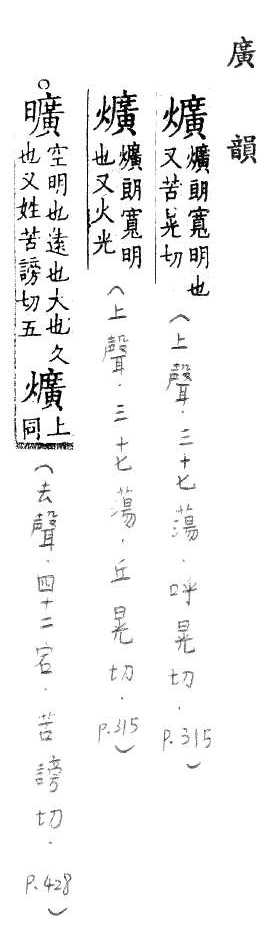 廣韻
爌 爌朗寬明也又苦晃切 (上聲．三十七蕩．呼晃切．P.315)
爌 爌朗寬明也又火光 (上聲．三十七蕩．丘晃切．P.315)
曠 空明也遠也大也久也又姓苦謗切五 爌 上同 (去聲．四十二宕．苦謗切．P.428)